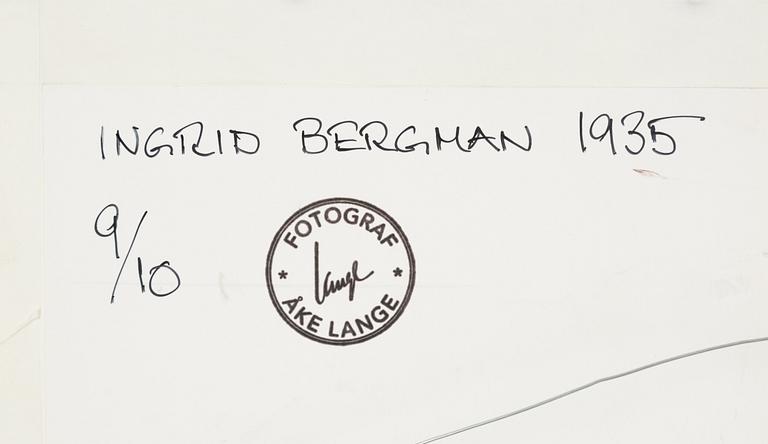 INGRID BERGMAN 1935
9/10
FOTOGRAF
Lange
ÅKE LANGE